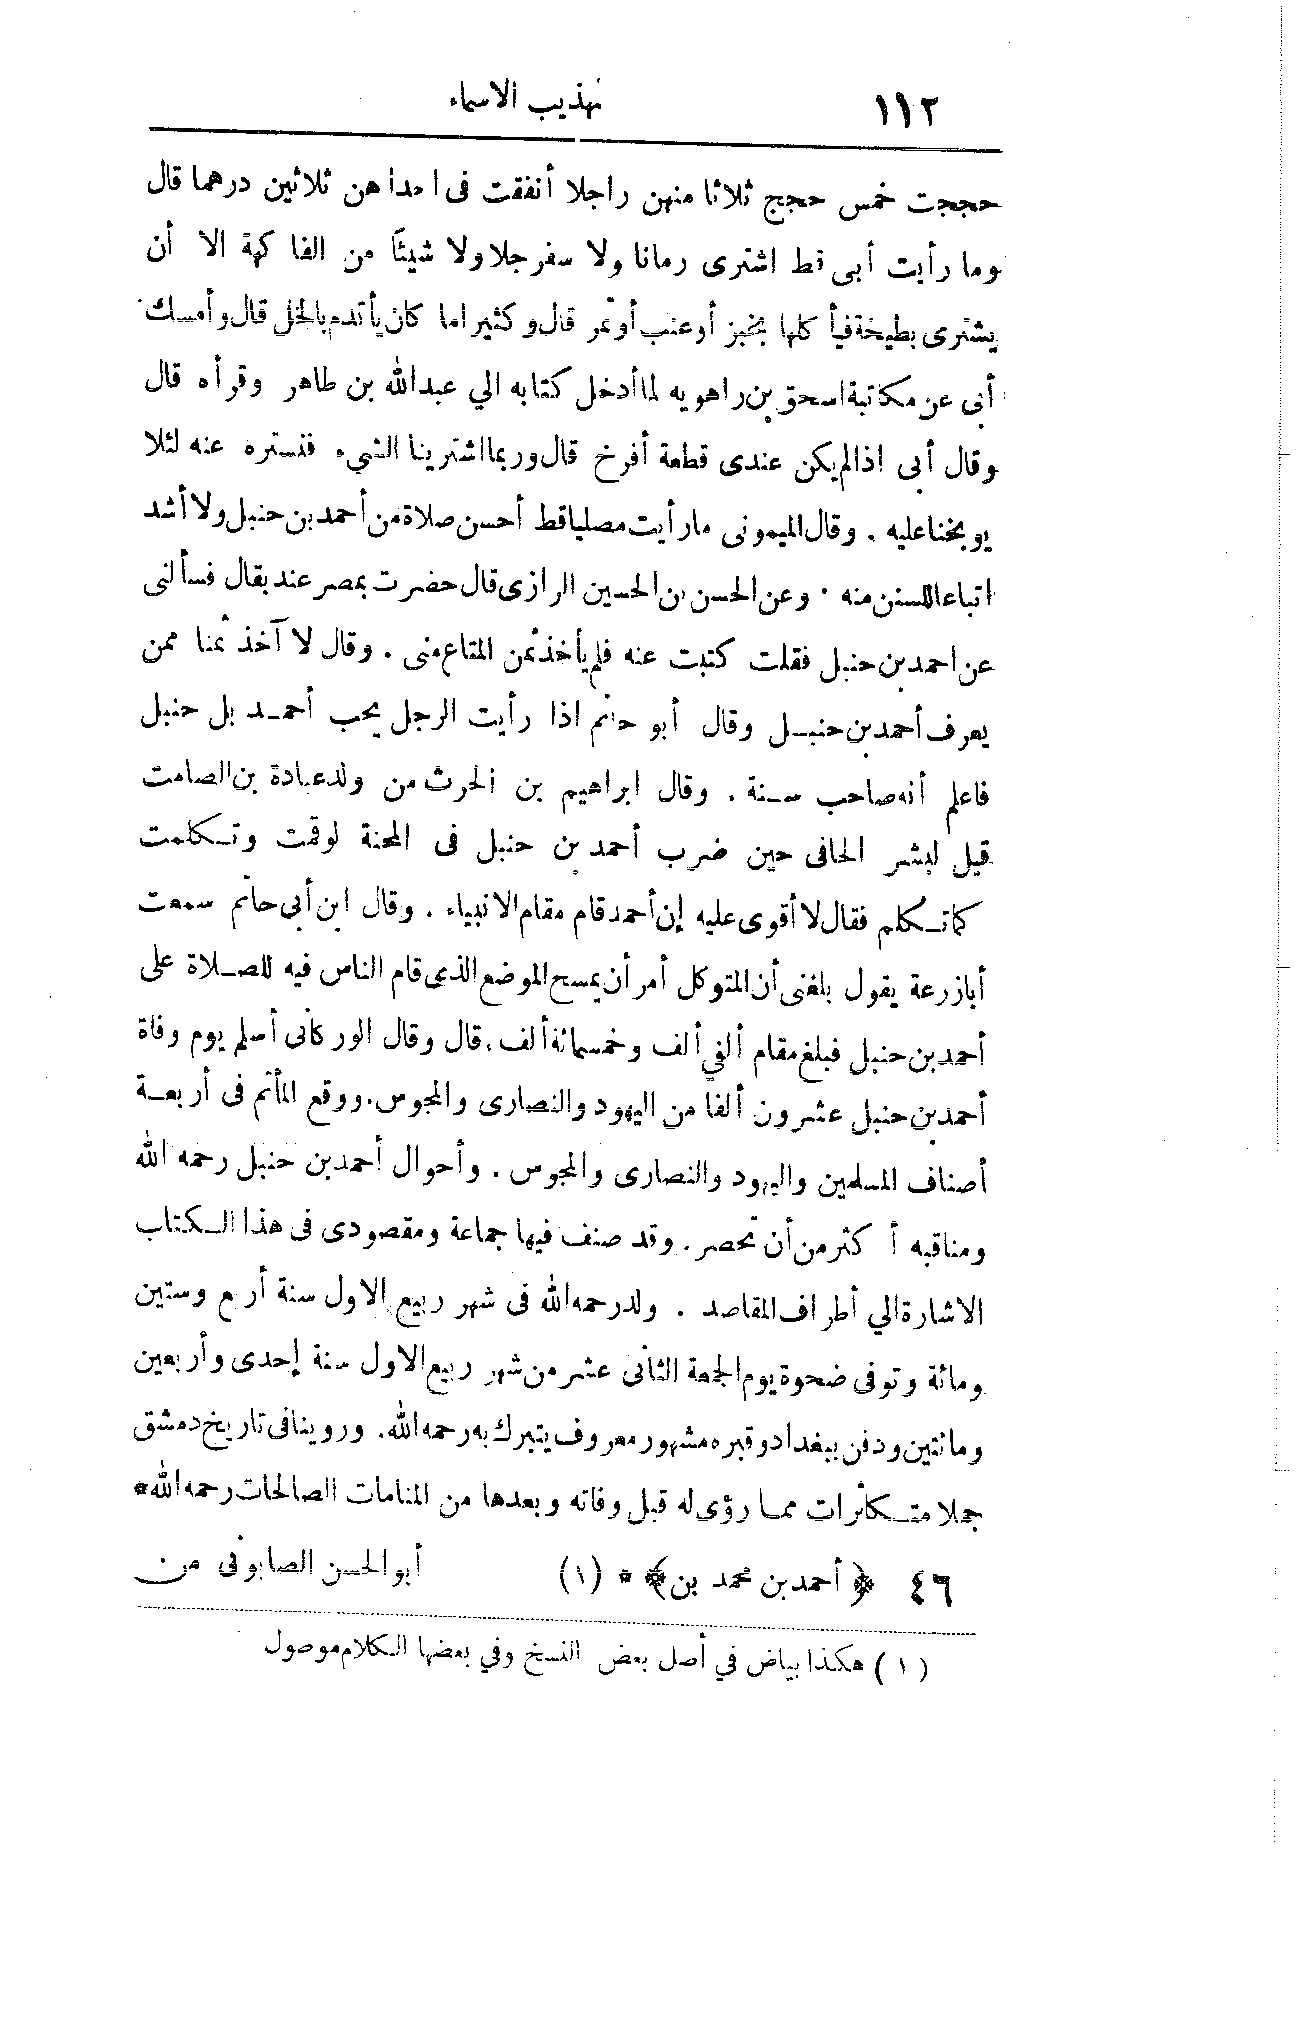 ١١٢ تهذيب الاسماء
حججت خمس حجج ثلاثا منهن راجلا أنفقت فى احداهن ثلاثين درهما قال
وما رأيت أبى قط اشترى رمانا ولا سفرجلا ولا شيئا من الفاكهة الا أن
يشترى بطيخة فيأكلها بخبز أو عنب أو تمر قال وكثيراما كان يأتدم بالخل قال وأمسك
أبى عن مكاتبة اسحق بن راهويه لما أدخل كتابه الي عبدالله بن طاهر وقرأه قال
وقال أبى اذا لم يكن عندى قطعة أفرخ قال وربما اشترينا الشيء فنستره عنه لئلا
يوبخنا عليه . وقال الميمونى مارأيت مصليا قط أحسن صلاة من أحمد بن حنبل ولا أشد
اتباعا للسنن منه . وعن الحسن بن الحسين الرازى قال حضرت بمصر عند بقال فسألنى
عن احمد بن حنبل فقلت كتبت عنه فلم يأخذ ثمن المتاع منى . وقال لا آخذ ثمنا ممن
يعرف أحمد بن حنبـل وقال أبو حاتم اذا رأيت الرجل يحب أحمـد بل حنبل
فاعلم أنه صاحب سـنة . وقال ابراهيم بن الحرث من ولد عبادة بن الصامت
قيل لبشر الحافى حين ضرب أحمد بن حنبل فى المحنة لوقمت وتـكلمت
كما تـكلم فقال لا أقوى عليه إن أحمد قام مقام الانبياء . وقال ابن أبى حاتم سمعت
أبازرعة يقول بلغنى أن المتوكل أمر أن يمسح الموضع الذى قام الناس فيه للصـلاة على
أحمد بن حنبل فبلغ مقام ألفي ألف وخمسمائة ألف . قال وقال الوركانى أسلم يوم وفاة
أحمد بن حنبل عشرون ألفا من اليهود والنصارى والمجوس . ووقع المأتم فى أربعـة
أصناف المسلمين واليهود والنصارى والمجوس . وأحوال أحمد بن حنبل رحمه الله
ومناقبه أكثر من أن تحصر . وقد صنف فيها جماعة ومقصودى فى هذا الـكتاب
الاشارة الي أطراف المقاصد . ولد رحمه الله فى شهر ربيع الاول سنة أربع وستين
ومائة وتوفى ضحوة يوم الجمعة الثانى عشر من شهر ربيع الاول سنة إحدى وأربعين
ومائتين ودفن ببغداد وقبره مشهور معروف يتبرك به رحمه الله . وروينا فى تاريخ دمشق
جملا متـكاثرات ممـا رؤى له قبل وفاته وبعدها من المنامات الصالحات رحمه الله *
٤٦ ﴿ أحمد بن محمد بن ﴾ * (١) أبو الحسن الصابونى من
(١) هكذا بياض في أصل بعض النسخ وفي بعضها الـكلام موصول